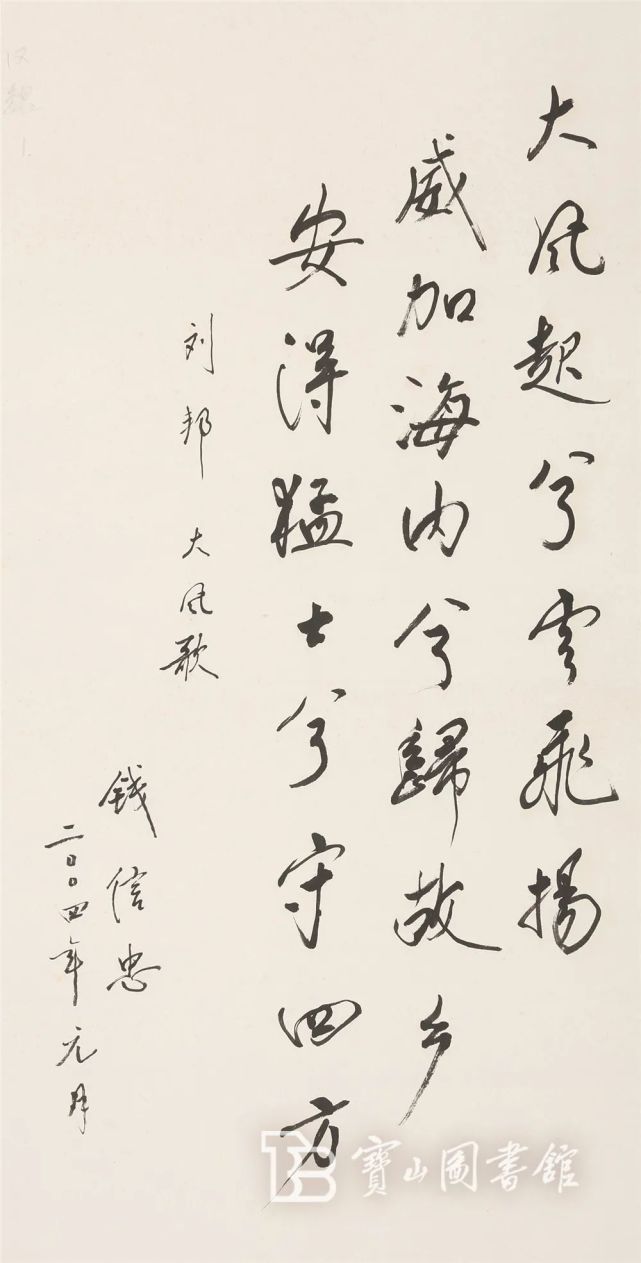 大风起兮雲飛揚
威加海内兮歸故乡
安得猛士兮守四方
刘邦 大风歌
錢信忠
二〇〇四年元月
寶山圖書館